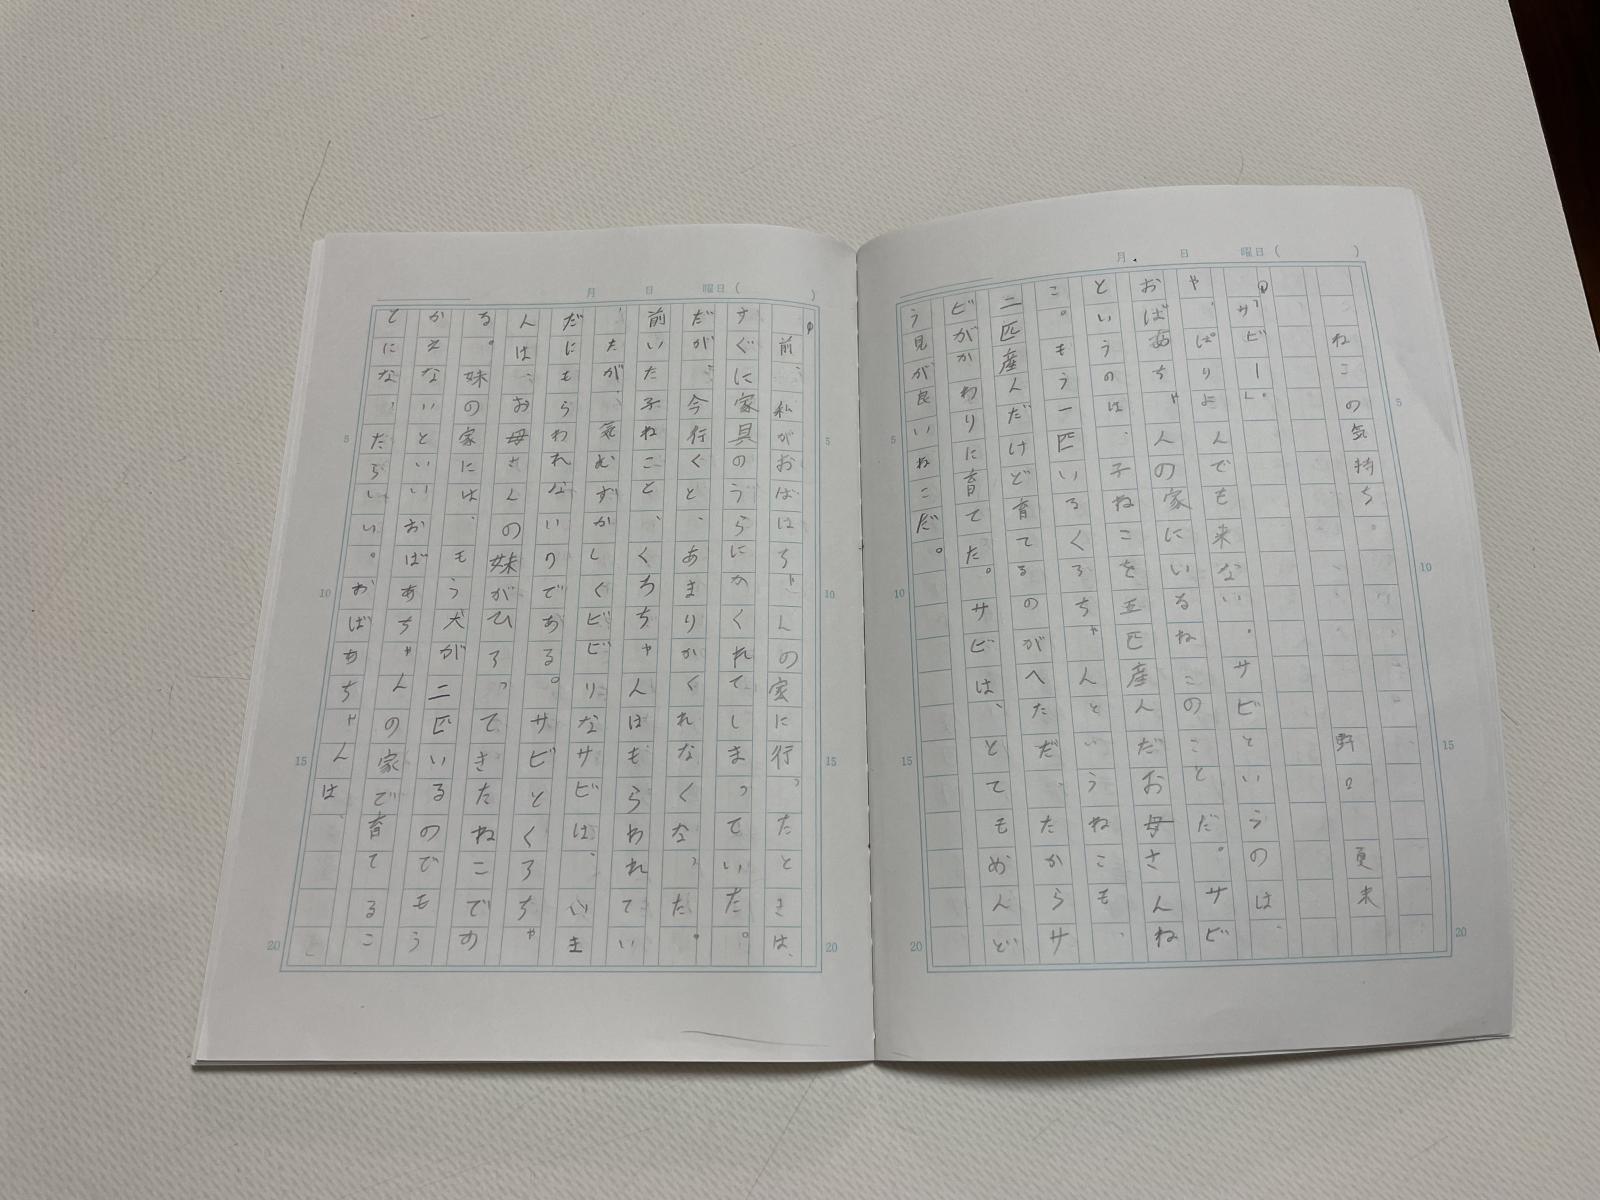 月 日 曜日( )
ねこの気持ち。
野口 更来
「サビー」。
やっぱりよんでも来ない。サビというのは、
おばあちゃんの家にいるねこのことだ。サビ
というのは、子ねこを五匹産んだお母さんね
こ。もう一匹いるくろちゃんというねこも、
二匹産んだけど育てるのがへただ、たからサ
ビがかわりに育てた。サビは、とてもめんど
う見が良いねこだ。
5
10
15
20
5
10
15
20
月 日 曜日( )
前、私がおばあちゃんの家に行ったときは、
すぐに家具のうらにかくれてしまっていた。
だが、今行くと、あまりかくれなくなった。
前いた子ねこと、くろちゃんはもらわれてい
ったが、気むずかしくビビりなサビは、いま
だにもらわれないのである。サビとくろちゃ
んは、お母さんの妹がひろってきたねこであ
る。妹の家には、もう犬が二匹いるのでもう
かえないといいおばあちゃんの家で育てるこ
とになったらしい。おばあちゃんは、
5
10
15
20
5
10
15
20